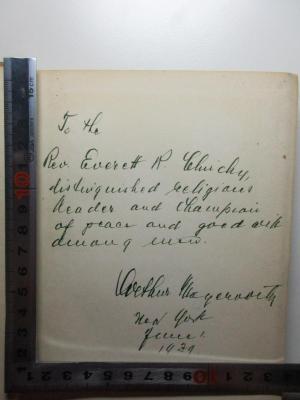 To the
Rev Everett R Clinchy,
distinguished religious
leader and champion
of peace and good will
among men.
Arthur
New York
June 1
1939